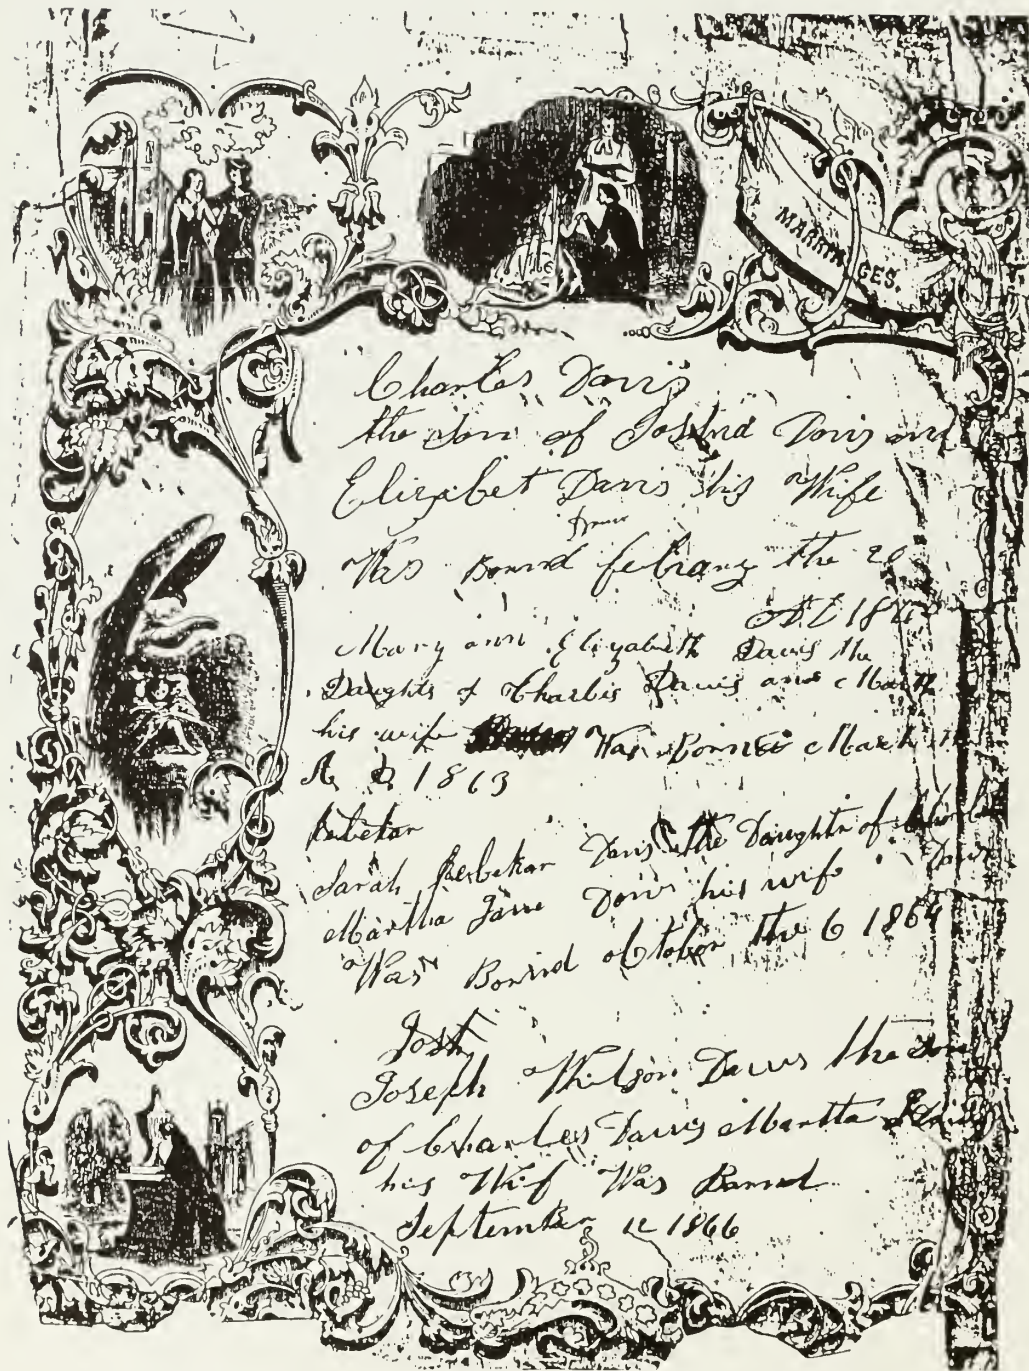 MARRIAGES.
Charles Davis
the Son of Davis and
Elizebet Davis his Wife
Was Bornd febrary the 20
AD 184
Mary ann Elizabeth Davis the
Daughts of Charlis Davis and Marth
his wife Was Bornd March
A D 1863
Rebekar
Sarah Rerbekar Davis the Daughtr of Charles
Martha Jane Davis his wife Davis
Was Bornd October the 6 1864
Josh
Joseph Whilson Davis the Son
of Charles Davis Martha
his Wif Was Barnd
September 12 1866